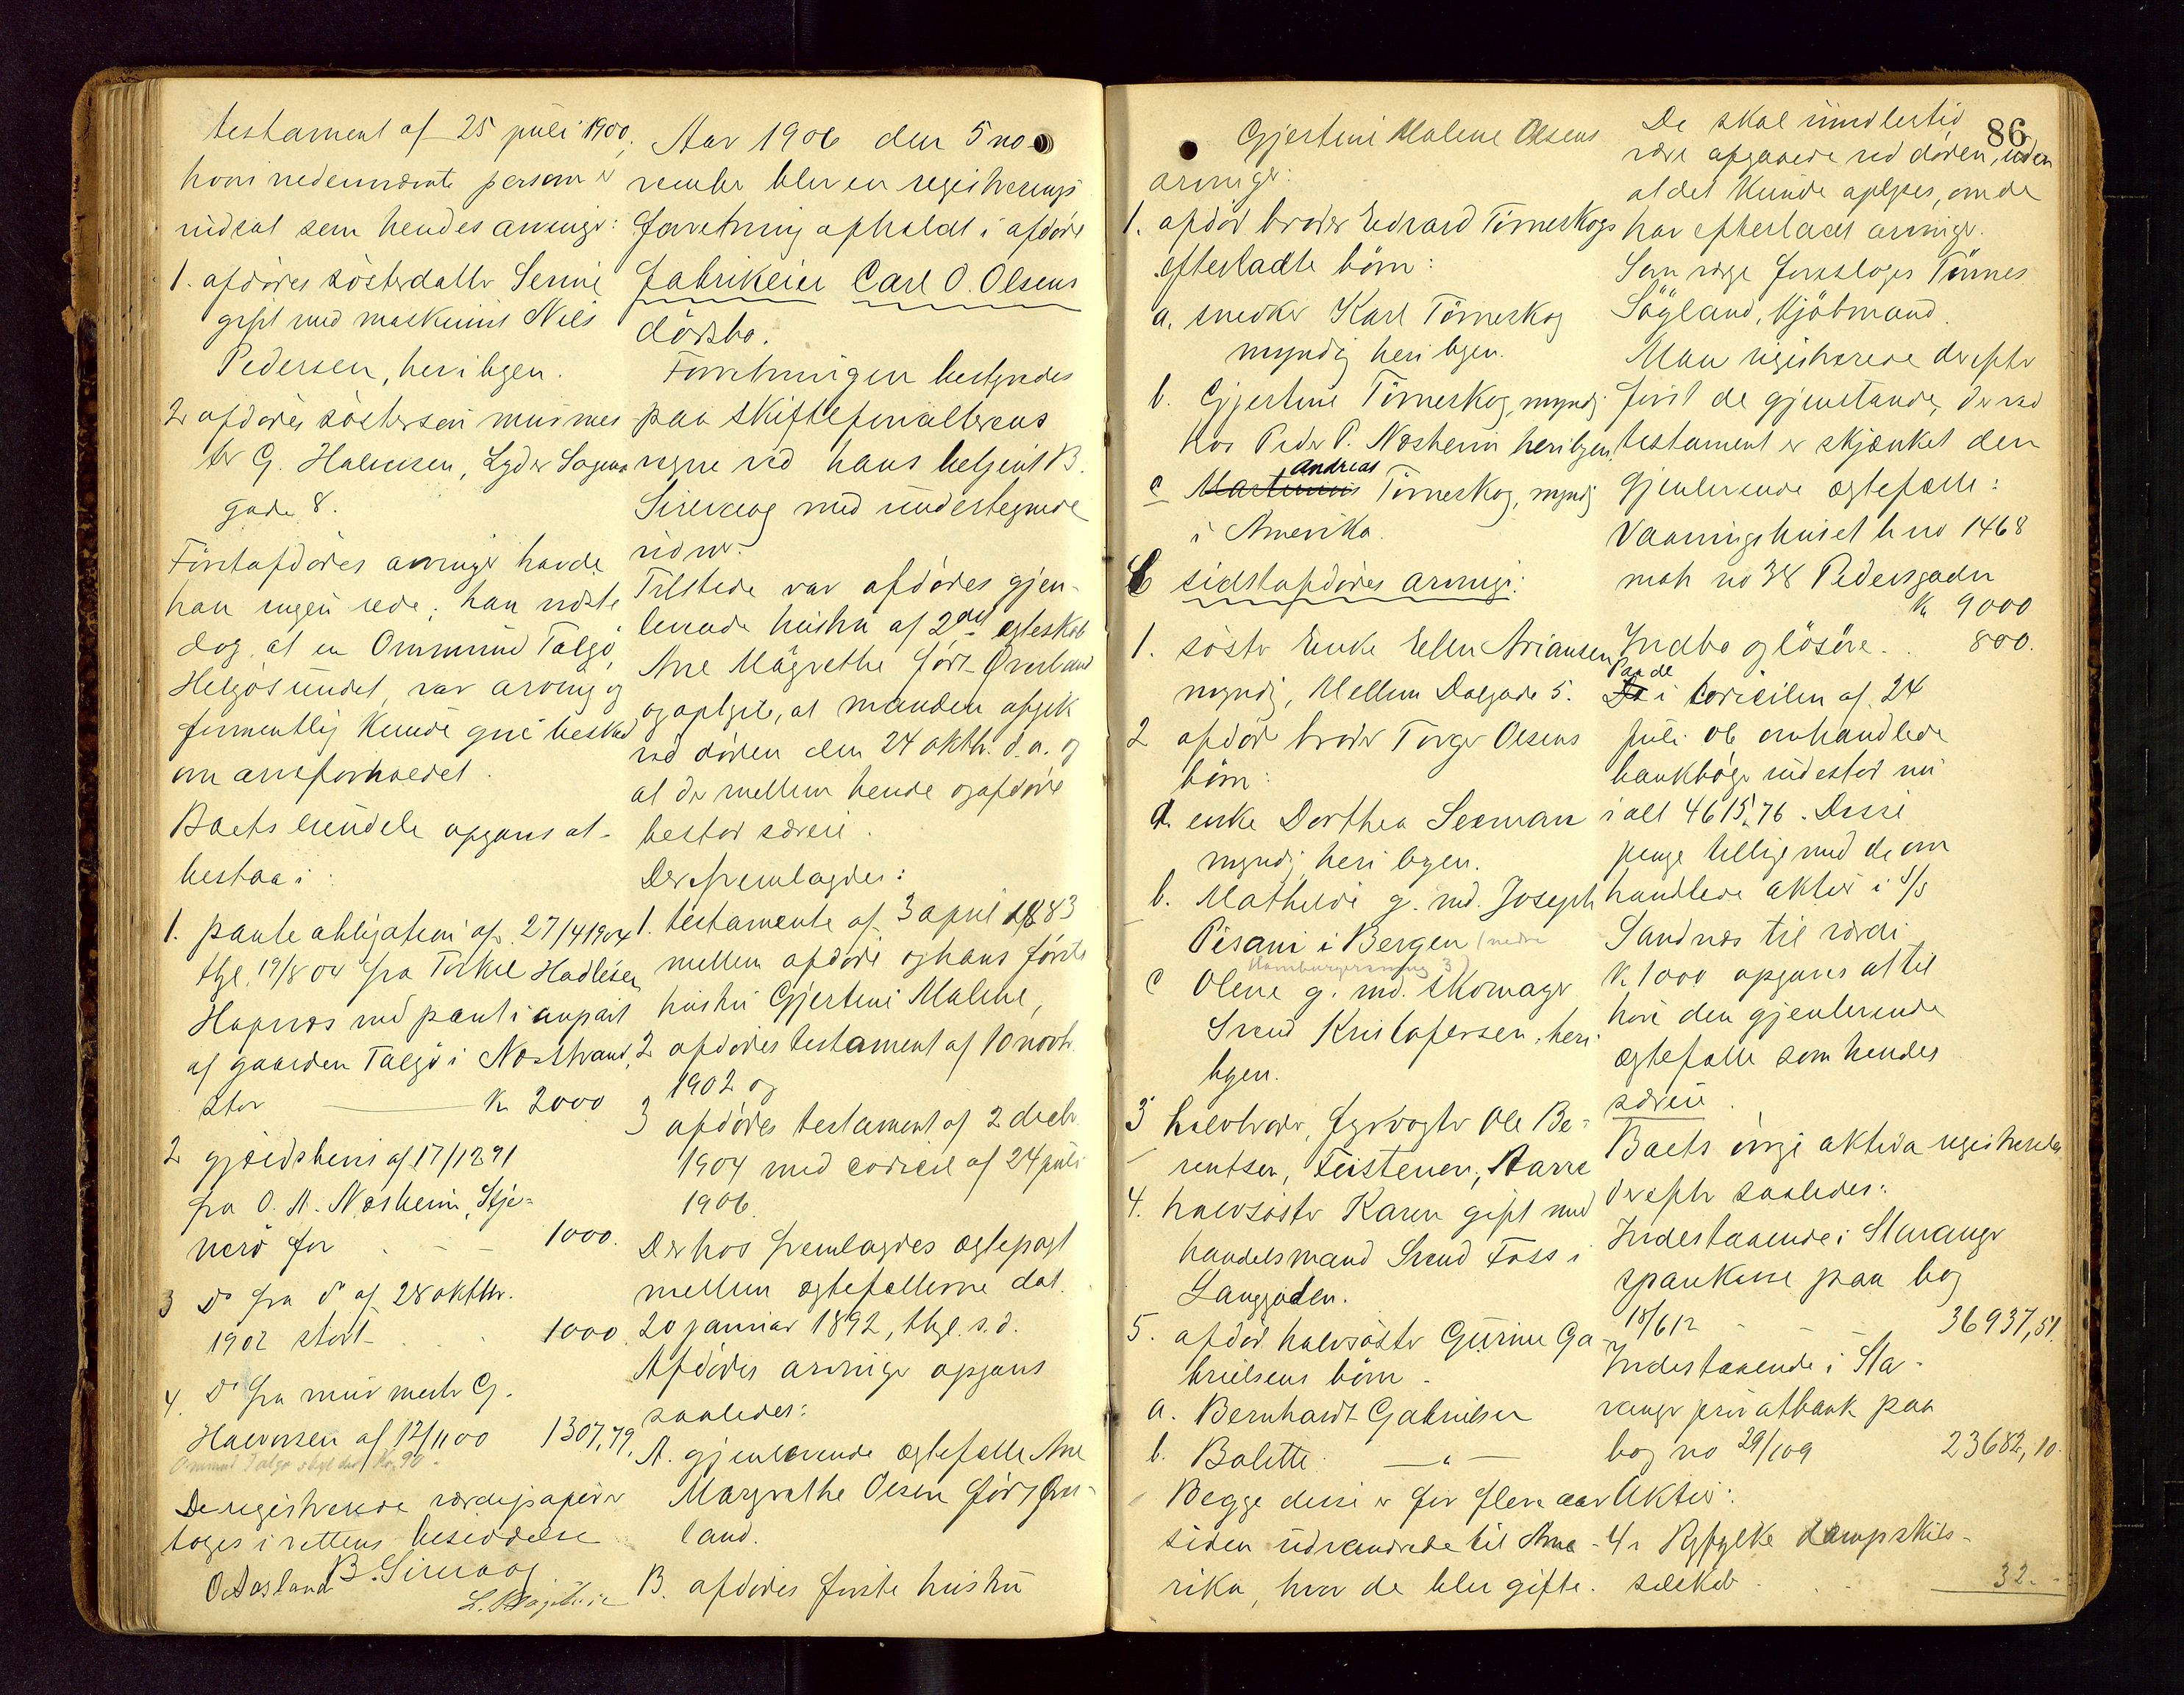 testament af 25 juli 1900,
hvori nedennævnte personer er
indsat som hendes arvinger:
1. afdødes søsterdatter Serine
gift med maskinist Nils
Pedersen, her i byen.
2 afdødes søstersøn murmes
ter G. Halvorsen, Lyder Sagens
gade 8.
Førstafdødes arvinger havde
han ingen rede; han vidste
dog, at en Ommund Talgø,
Helgøsundet, var arving og
formentlig kunde give besked
om arveforholdet.
Boets eiendele opgaves at
bestaa i:
1. panteobligation af 27/4 1904
tgl. 19/8 04 fra Torkel Hadlesen
Hapnes med pant i anpart
af gaarden Talgø i Nestrand,
stor K 2000
2 gjældsbevis af 17/12 91
fra O. A. Næsheim, Stje-
nerø for 1000.
3 Do fra do af 28 oktbr.
1902 stort 1000.
4. Do fra murmester G.
Halvorsen af 12/11 00 1307,79.
Ommund Talgø skyld der Kr. 90.-
De registrerede værdipapirer
toges i rettens besiddelse
O. Aasland B. Sirevaag
Aar 1906 den 5 no-
vember blev en registrerings
forretning afholdt i afdøde
fabrikeier Carl O. Olsens
dødsbo.
Forretningen bestyredes
paa skifteforvalterens
vegne ved hans betjent B.
Sirevaag med undertegnede
vidner.
Tilstede var afdødes gjen-
levende hustru af 2det egteskab
Ane Margrethe født Øverland
og oplyste, at manden afgik
ved døden den 24 oktbr. d.a. og
at der mellem hende og afdøde
bestod særeie.
Der fremlagdes:
1. testamente af 3 april 1883
mellem afdøde og hans første
hustru Gjertine Malene,
2 afdødes testament af 10 novbr.
1902 og
3 afdødes testament af 2 decbr.
1904 med codicil af 24 juli
1906.
Derhos fremlagdes egtepagt
mellem egtefællerne dat.
20 januar 1892, tgl. s.d.
Afdødes arvinger opgaves
saaledes:
A. gjenlevende egtefælle Ane
Margrethe Olsen født Øver-
land.
B. afdødes første hustru
86
Gjertine Malene Olsens
arvinger:
1. afdød broder Edvard Tørneskogs
efterladte børn:
a. snedker Karl Tørneskog
myndig her i byen.
b. Gjertine Tørneskog, myndig
hos Peder P. Næsheim her i byen.
Andreas
c Martinius Tørneskog, myndig
i Amerika.
C sidstafdødes arvinger:
1. søster Enke Ellen Ariansen
myndig, Mellem Dalgade 5.
2 afdød broder Torger Olsens
børn:
a. enke Dorthea Seeman
myndig, her i byen.
b. Mathilde g. med Joseph
Pisani i Bergen (nedre
Hamburgersmug 3)
c Olene g. med skomager
Svend Kristofersen, her i
byen.
3 halvbroder, fyrvogter Ole Be-
rentsen, Feistenen, Aarre
4. halvsøster Karen gift med
handelsmand Svend Foss i
Langgaden.
5. afdød halvsøster Gurine Ga-
brielsens børn
a. Bernhardt Gabrielsen
b. Bolette —"—
Begge disse er for flere aar
siden udvandrede til Ame-
rika, hvor de blev gifte.
De skal imidlertid
være afgaaede ved døden, uden
at det kunde oplyses, om de
har efterladt arvinger.
Som værge foresloges Tønnes
Søyland, kjøbmand.
Man registrerede derefter
først de gjenstande, der ved
testament er skjænket den
gjenlevende egtefælle:
Vaaningshuset b no 1468
matr no 38 Pedersgaden
K 9000
Indbo og løsøre. . 800.
Paa de
De i codicilen af 24
juli 06 omhandlede
bankbøger indestod nu
ialt 4615,76. Disse
penge tillige med de om
handlede aktier i S/S
Sandnæs til værdi
K 1000 opgaves at til
høre den gjenlevende
egtefælle som hendes
særeie.
Boets øvrige aktiva registreredes
derefter saaledes:
Indestaaende i Stavanger
sparekasse paa bog
18/612 36937,51.
Indestaaende i Sta-
vanger privatbank paa
bog no 29/109 23682,10.
Aktier:
4 i Ryfylke dampskibs-
selskab 32.-